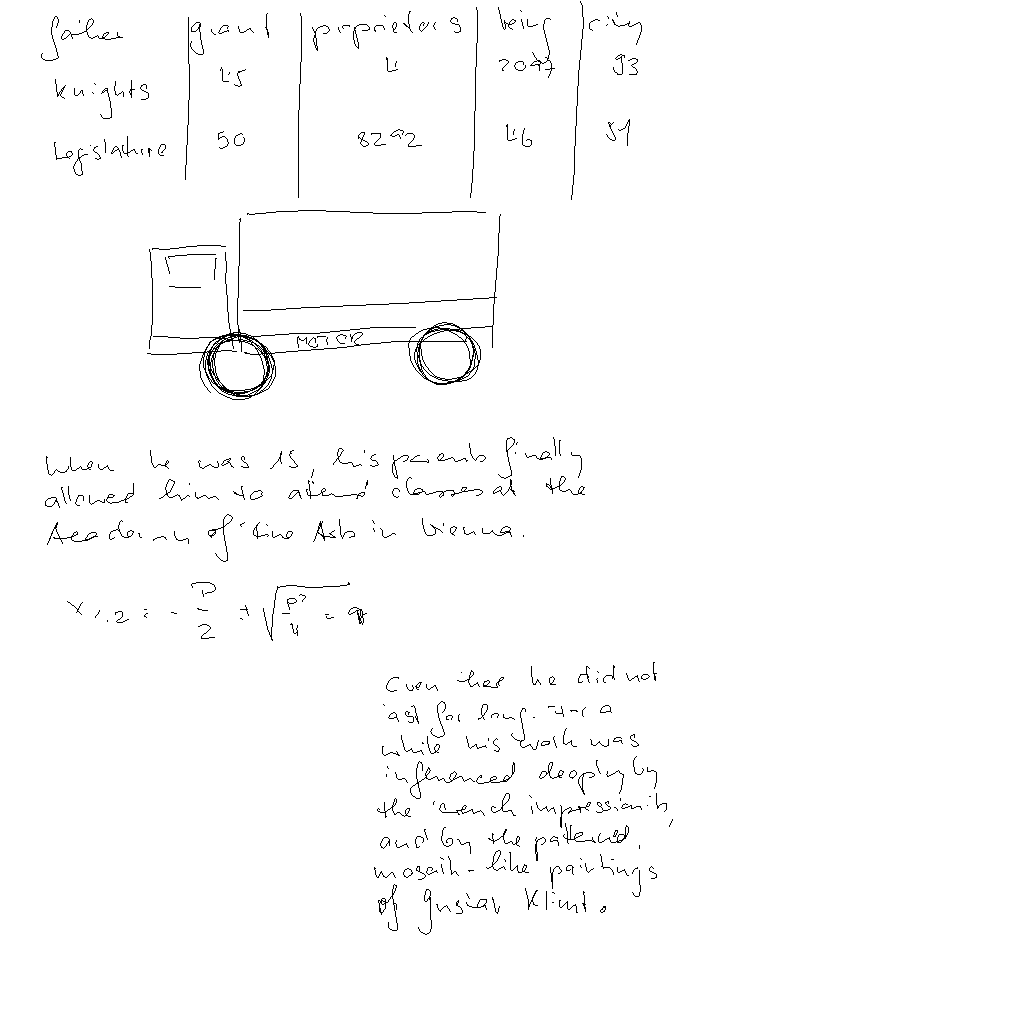 father grant proprietors being city
Knights 45 4 2097 93
Legislature 50 8292 46 51
MOTOR
When he was 15, his parents finally
allowed him to attend classes at the
Academy of Fine Arts in Vienna.
x1,2 = - p/2 ± √(p²/4 - q)
Even there he did not
last for long. For a
while his work was
influenced deeply by
the French impressionists,
and by the patterned,
mosaik-like paintings
of Gustav Klimt.